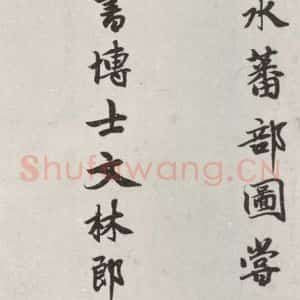 水蕃部圖嘗
書博士文林郎
Shufawang.CN